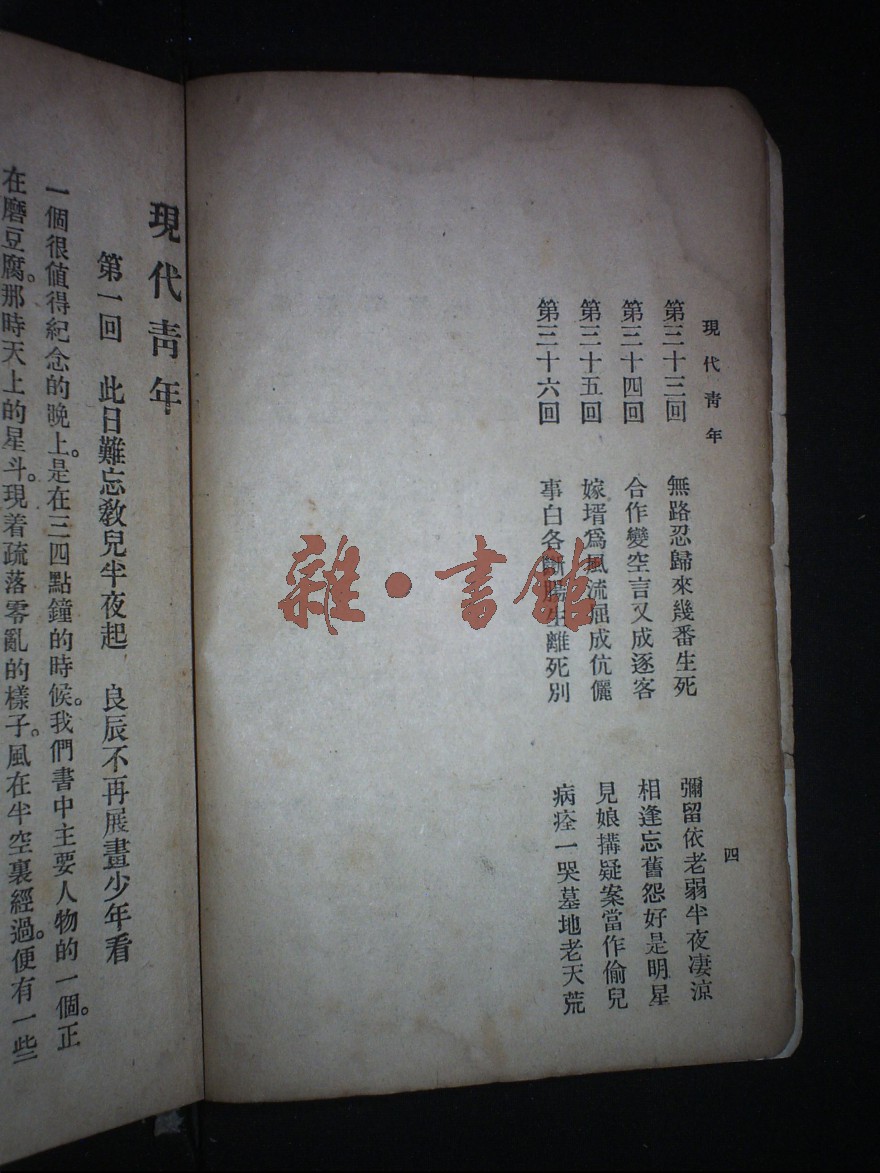 現代青年
四
第三十三回 無路忍歸來幾番生死 彌留依老弱半夜凄涼
第三十四回 合作變空言又成逐客 相逢忘舊怨好是明星
第三十五回 嫁壻爲風流屈成伉儷 見娘搆疑案當作偷兒
第三十六回 事白各斷腸生離死別 病痊一哭墓地老天荒
現代青年
第一回 此日難忘敎兒半夜起 良辰不再展畫少年看
一個很值得紀念的晚上。是在三四點鐘的時候。我們書中主要人物的一個。正
在磨豆腐。那時天上的星斗。現着疏落零亂的樣子。風在半空裏經過。便有一些
雜·書館